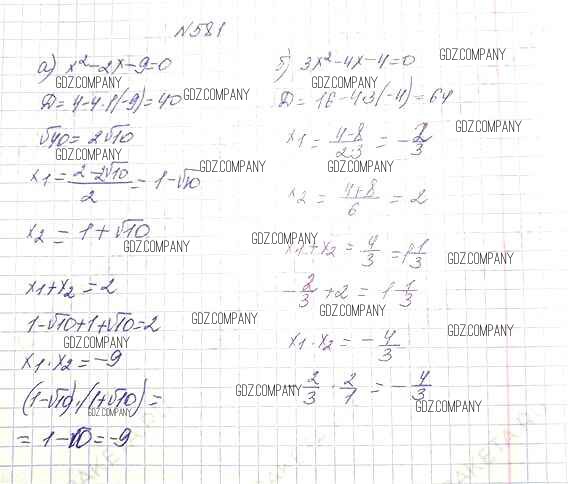 N581
а) x²-2x-9=0
GDZ.COMPANY
Д=4-4·1·(-9)=40
GDZ.COMPANY
√40=2√10
GDZ.COMPANY
x1=(2-2√10)/2=1-√10
GDZ.COMPANY
x2=1+√10
GDZ.COMPANY
x1+x2=2
1-√10+1+√10=2
GDZ.COMPANY
GDZ.COMPANY
x1·x2=-9
(1-√10)·(1+√10)=
GDZ.COMPANY
=1-10=-9
б) 3x²-4x-4=0
GDZ.COMPANY
GDZ.COMPANY
Д=16-4·3(-4)=64
x1=(4-8)/(2·3)=-2/3
GDZ.COMPANY
GDZ.COMPANY
x2=(4+8)/6=2
GDZ.COMPANY
x1+x2=4/3=1 1/3
GDZ.COMPANY
-2/3+2=1 1/3
GDZ.COMPANY
x1·x2=-4/3
GDZ.COMPANY
GDZ.COMPANY
2/3·2/1=-4/3
GDZ.COMPANY